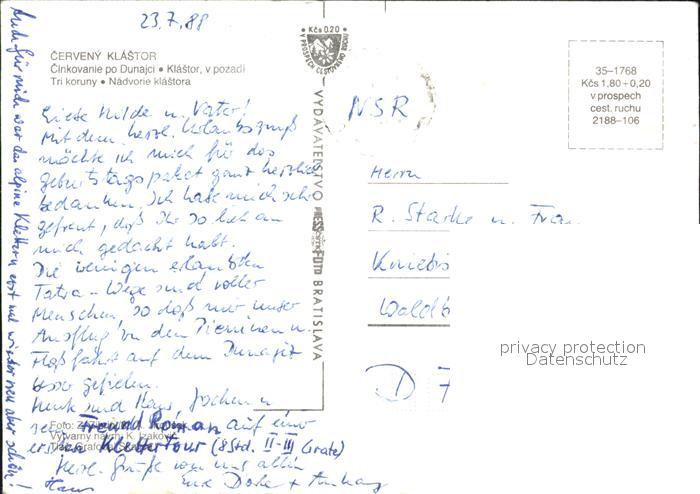 23.7.88
ČERVENÝ KLÁŠTOR
Člnkovanie po Dunajci • Kláštor, v pozadí
Tri koruny • Nádvorie kláštora
Liebe Hilde u. Vater!
Mit dem herzl. Urlaubsgruß
möchte ich mich für das
Geburtstagspaket ganz herzlich
bedanken. Ich habe mich sehr
gefreut, daß Ihr so lieb an
mich gedacht habt.
Die wenigen erlaubten
Tatra-Wege sind voller
Menschen, so daß mir unser
Ausflug in den Pieninen u.
Floßfahrt auf dem Dunajec
besser gefielen.
Heute sind Hans, Jochen u
sein Freund Roman auf einer
ersten Klettertour (8 Std. II-III Grate)
Herzl. Grüße von uns allen
Hans Eure Dore +
Auch für mich war das alpine Klettern erst mal wieder neu aber schön!
Foto: Z.
Výtvarný návrh: K. Izakovič
Kčs 0.20
V PROSPECH CESTOVNÉHO RUCHU
VYDAVATEĽSTVO PRESSFOTO BRATISLAVA
NSR
35–1768
Kčs 1,80 + 0,20
v prospech
cest. ruchu
2188–106
Herrn
R. Starke u. Frau
Kniebis
Waldb
D 7
privacy protection
Datenschutz